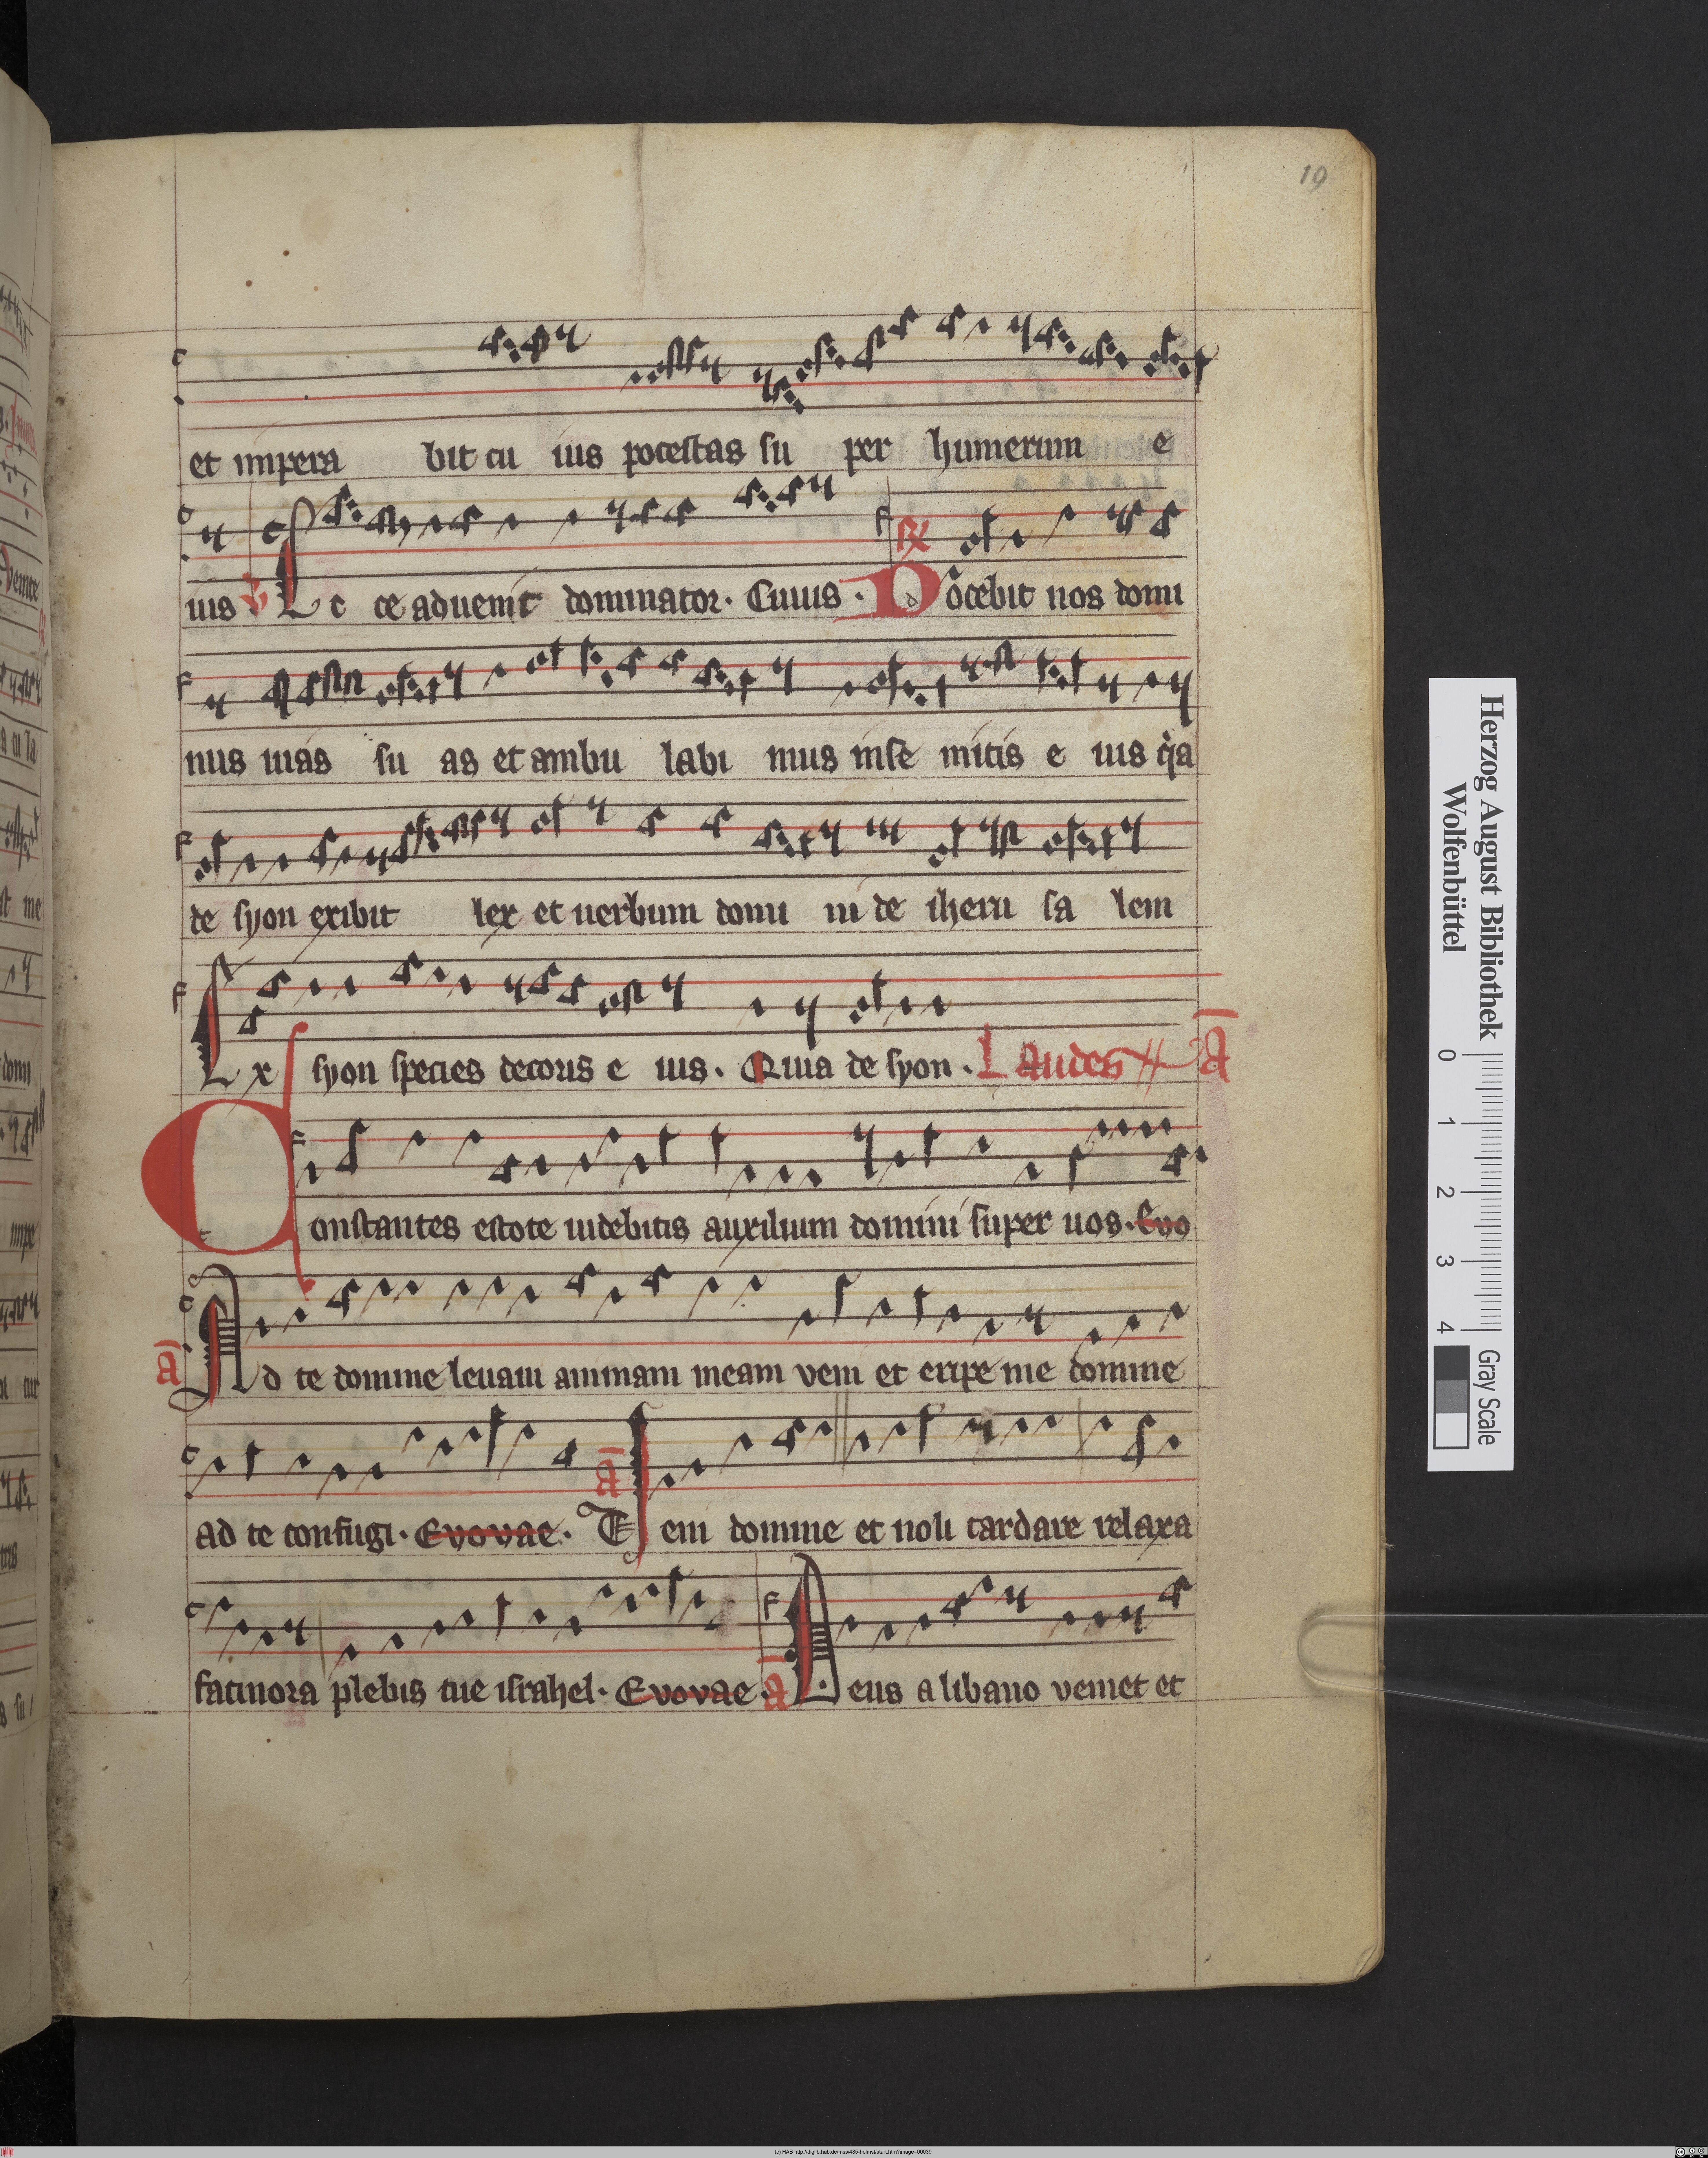 19
et impera bit cu ius potestas su per humerum e
ius V Ec ce aduenit dominator. Cuius. R Docebit nos domi
nus uias su as et ambu labi mus in se mitis e ius q̇a
de syon exibit lex et uerbum domi ni de iheru sa lem
Ex syon species decoris e ius. Quia de syon. Laudes A
Constantes estote uidebitis auxilium domini super uos. Evo
a Ad te domine leuaui animam meam veni et eripe me domine
ad te confugi. Evovae. a Veni domine et noli tardare relaxa
facinora plebis tue israhel. Evovae. a Deus a libano veniet et
Herzog August Bibliothek
Wolfenbüttel
0 1 2 3 4
Gray Scale
(c) HAB http://diglib.hab.de/mss/485-helmst/start.htm?image=00039